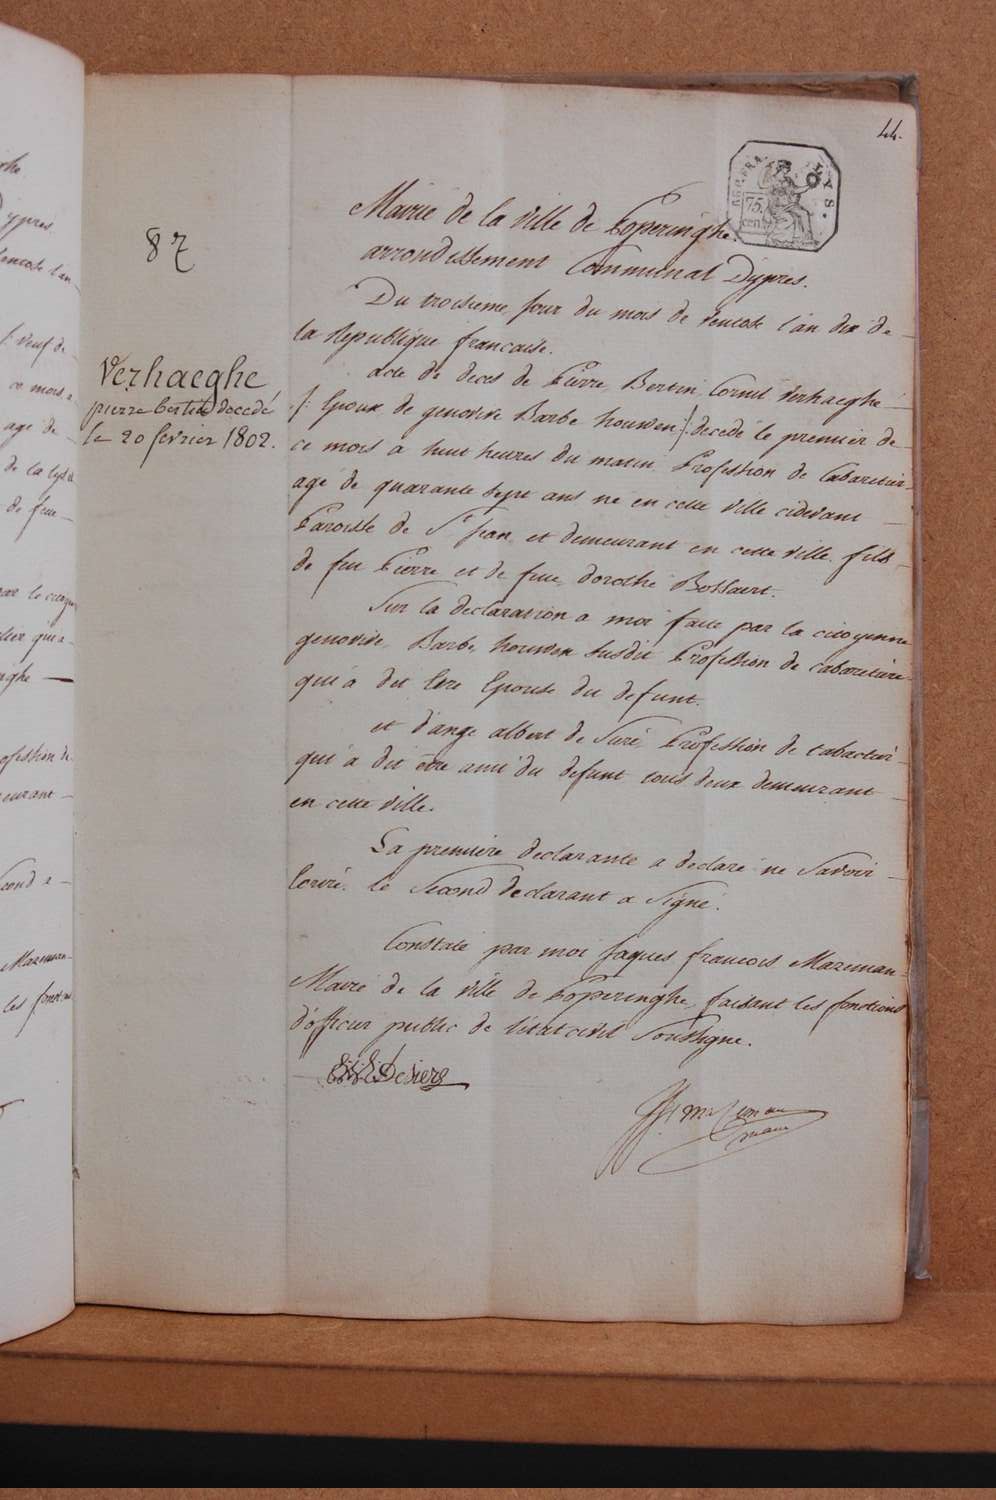 44.
REP. FRA. LYS.
75.
cen
87
Mairie de la ville de Poperinghe.
arrondissement Communal Dypres.
Du troisieme jour du mois de ventose l'an dix de
la Republique francaise.
Verhaeghe
pierre bertin decedé
le 20 fevrier 1802.
acte de deces de Pierre Bertin Cornil Verhaeghe
/: Epoux de genovive Barbe houwen :/ decedé le premier de
ce mois a huit heures du matin Profession de Cabaretier
agé de quarante sept ans né en cette ville cidevant
Paroisse de St Jean et demeurant en cette ville fils
de feu Pierre et de feue dorothé Bossaert.
Sur la declaration a moi faite par la citoyenne
genovive Barbe houwen susdit Profession de cabaretiere
qui a dit Etre Epouse du defunt.
et d'ange albert de Suré Profession de
qui a dit être ami du defunt tous deux demeurant
en cette ville.
La premiere declarante a declaré ne Savoir
Ecriré. le Second declarant a Signé.
Constaté par moi Jaques francois Mazeman
Maire de la ville de Poperinghe faisant les fonctions
d'officier public de l'etat civil Soussigne.
maire